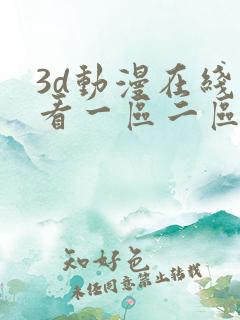 3d動漫在綫
看一區二區
知好色
未任同意禁止转载